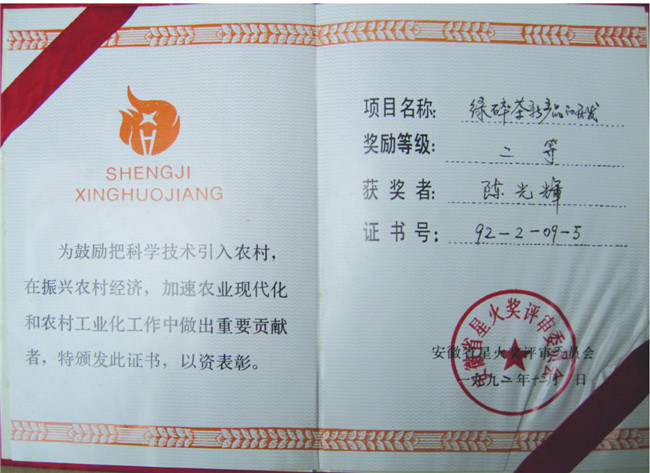 SHENGJI
XINGHUOJIANG
为鼓励把科学技术引入农村，
在振兴农村经济，加速农业现代化
和农村工业化工作中做出重要贡献
者，特颁发此证书，以资表彰。
项目名称：绿碎茶新产品的开发
奖励等级：二 等
获 奖 者：陈光辉
证 书 号：92-2-09-5
安徽省星火奖评审委员会
安徽省星火奖评审委员会
一九九二年十二月 日